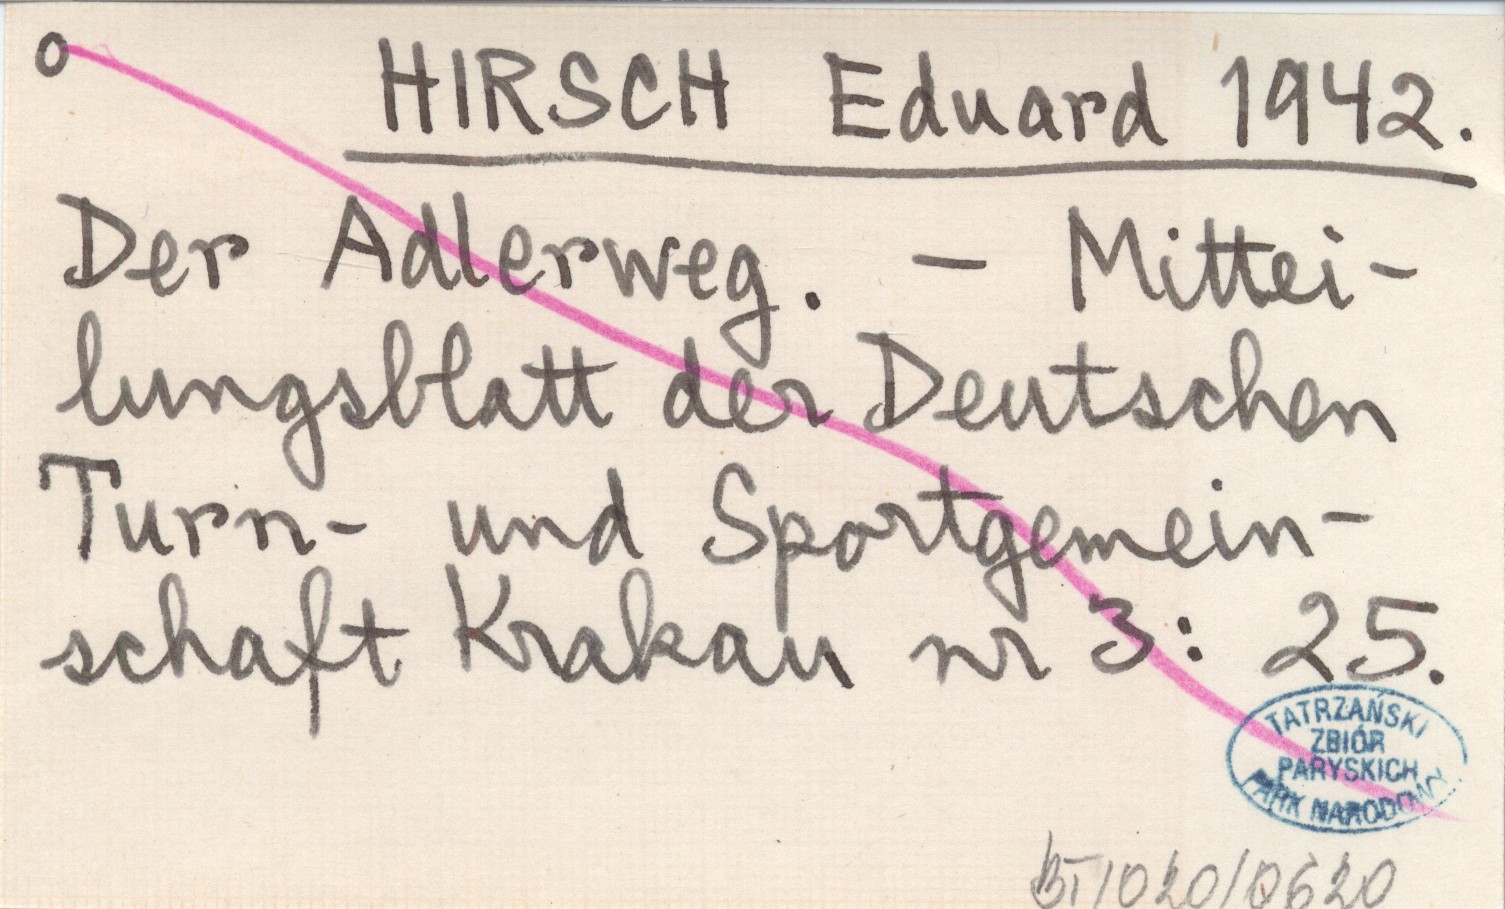 o HIRSCH Eduard 1942.
Der Adlerweg. – Mittei-
lungsblatt der Deutschen
Turn- und Sportgemein-
schaft Krakau nr 3: 25.
TATRZAŃSKI
ZBIÓR
PARYSKICH
PARK NARODOWY
BT/020/0620